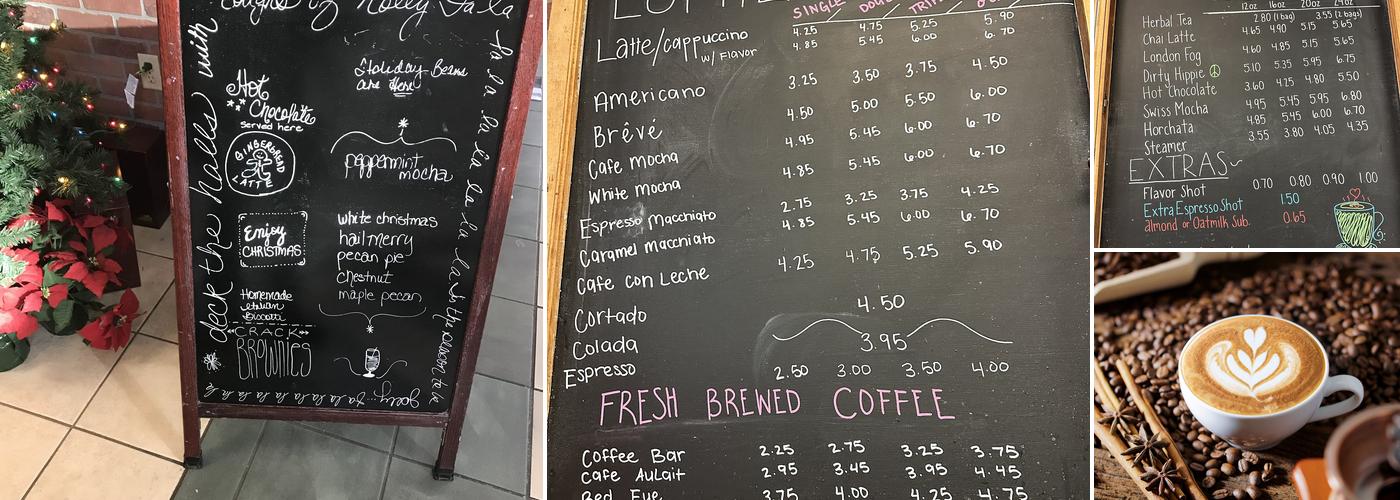 deck the halls with
Hot
Chocolate
served here
GINGERBREAD
LATTE
Enjoy
CHRISTMAS
Homemade
italian
Biscotti
CRACK
BROWNIES
Holiday Beans
are Here
peppermint
mocha
white christmas
hail merry
pecan pie
chestnut
maple pecan
SINGLE
Latte/cappuccino 4.25 4.75 5.25 5.90
w/ Flavor 4.85 5.45 6.00 6.70
Americano 3.25 3.50 3.75 4.50
Brêvé 4.50 5.00 5.50 6.00
Cafe mocha 4.95 5.45 6.00 6.70
White mocha 4.85 5.45 6.00 6.70
Espresso Macchiato 2.75 3.25 3.75 4.25
Caramel Macchiato 4.85 5.45 6.00 6.70
Cafe con Leche 4.25 4.75 5.25 5.90
Cortado 4.50
Colada 3.95
Espresso 2.50 3.00 3.50 4.00
FRESH BREWED COFFEE
Coffee Bar 2.25 2.75 3.25 3.75
Cafe AuLait 2.95 3.45 3.95 4.45
Red Eye 3.75 4.00 4.25 4.75
12oz 16oz 20oz 24oz
Herbal Tea 2.80 (1 bag) 3.55 (2 bags)
Chai Latte 4.65 4.90 5.15 5.65
London Fog 4.60 4.85 5.15 5.65
Dirty Hippie 5.10 5.35 5.95 6.75
Hot Chocolate 3.60 4.25 4.80 5.50
Swiss Mocha 4.95 5.45 5.95 6.80
Horchata 4.85 5.45 6.00 6.70
Steamer 3.55 3.80 4.05 4.35
EXTRAS
Flavor Shot 0.70 0.80 0.90 1.00
Extra Espresso Shot 1.50
almond or Oatmilk Sub. 0.65